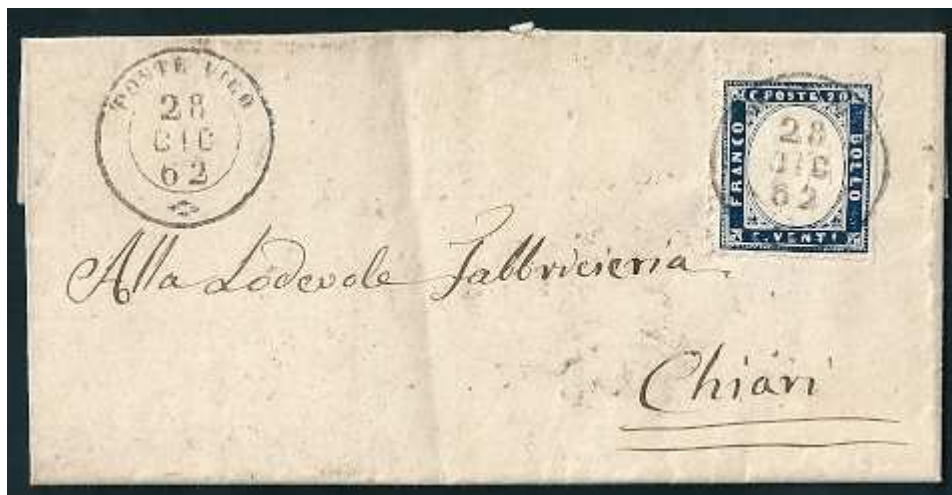 PONTE VICO
28
DIC
62
C. POSTE 20
FRANCO
BOLLO
28
DIC
62
C. VENTI
Alla Lodevole Fabbricieria
Chiari